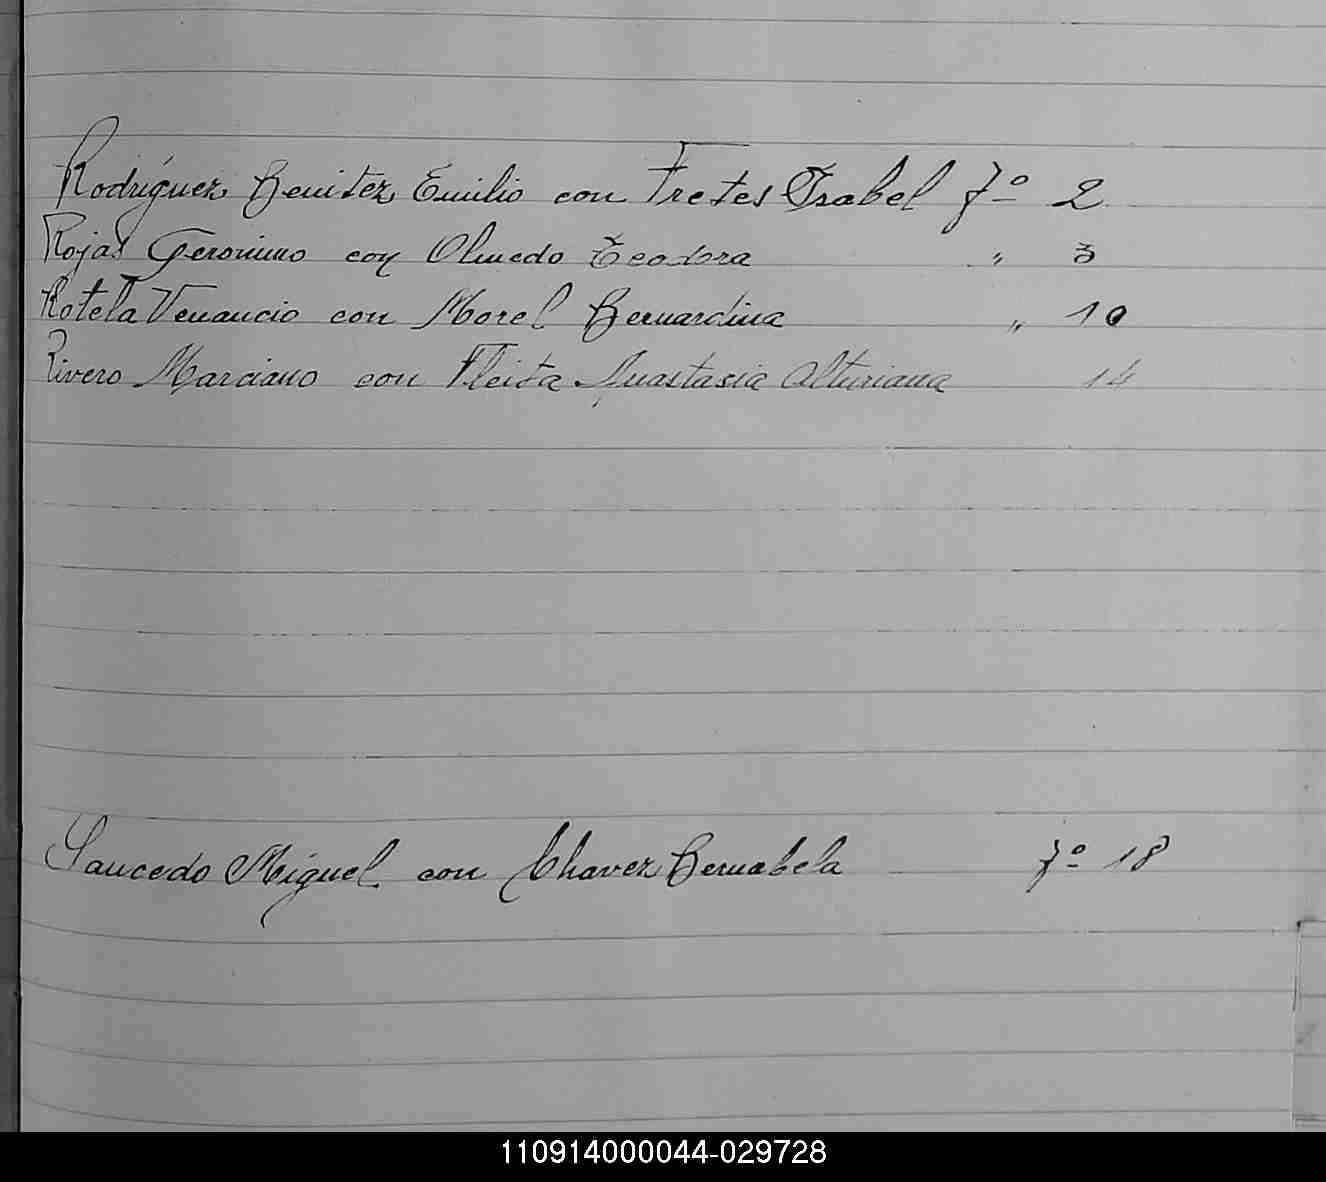 Rodríguez Benitez Emilio con Fretes Isabel fº 2
Rojas Geronimo con Olmedo Teodora " 3
Rotela Venancio con Morel Bernardina " 10
Rivero Marciano con Fleita Anastasia Alturiana 14
Saucedo Miguel con Chavez Bernabela fº 18
110914000044-029728